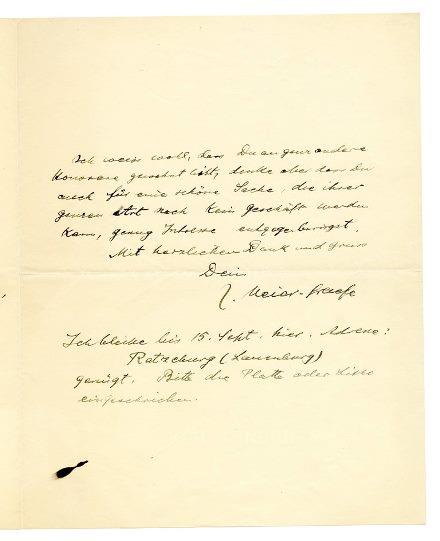 Ich weiss wohl, dass Du an ganz andere
Honorare gewöhnt bist, denke aber dass Du
auch für eine schöne Sache, die ihrer
ganzen Art nach kein Geschäft werden
kann, genug Interesse entgegenbringst.
Mit herzlichem Dank und Gruss
Dein
J. Meier-Graefe
Ich bleibe bis 15. Sept. hier. Adresse:
Ratzeburg (Lauenburg)
genügt. Bitte die Platte oder
eingeschrieben.